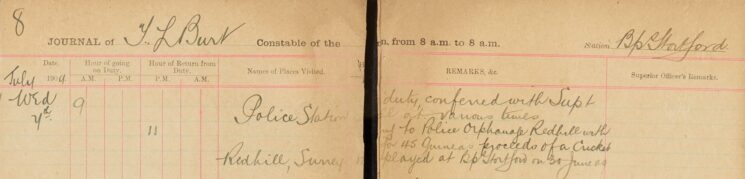 8
JOURNAL of T. L. Burt Constable of the n, from 8 a.m. to 8 a.m. Station Bp Stortford
Date. Hour of going on Duty. Hour of Return from Duty. Names of Places Visited. REMARKS, &c. Superior Officer's Remarks.
July 1909 A.M. P.M. A.M. P.M.
Wed 9 duty, conferred with Supt
7th Police Station at various times
11 to Police Orphanage Redhill with
for 45 Guineas proceeds of a Cricket
Redhill, Surrey played at Bp Stortford on 30 June 09